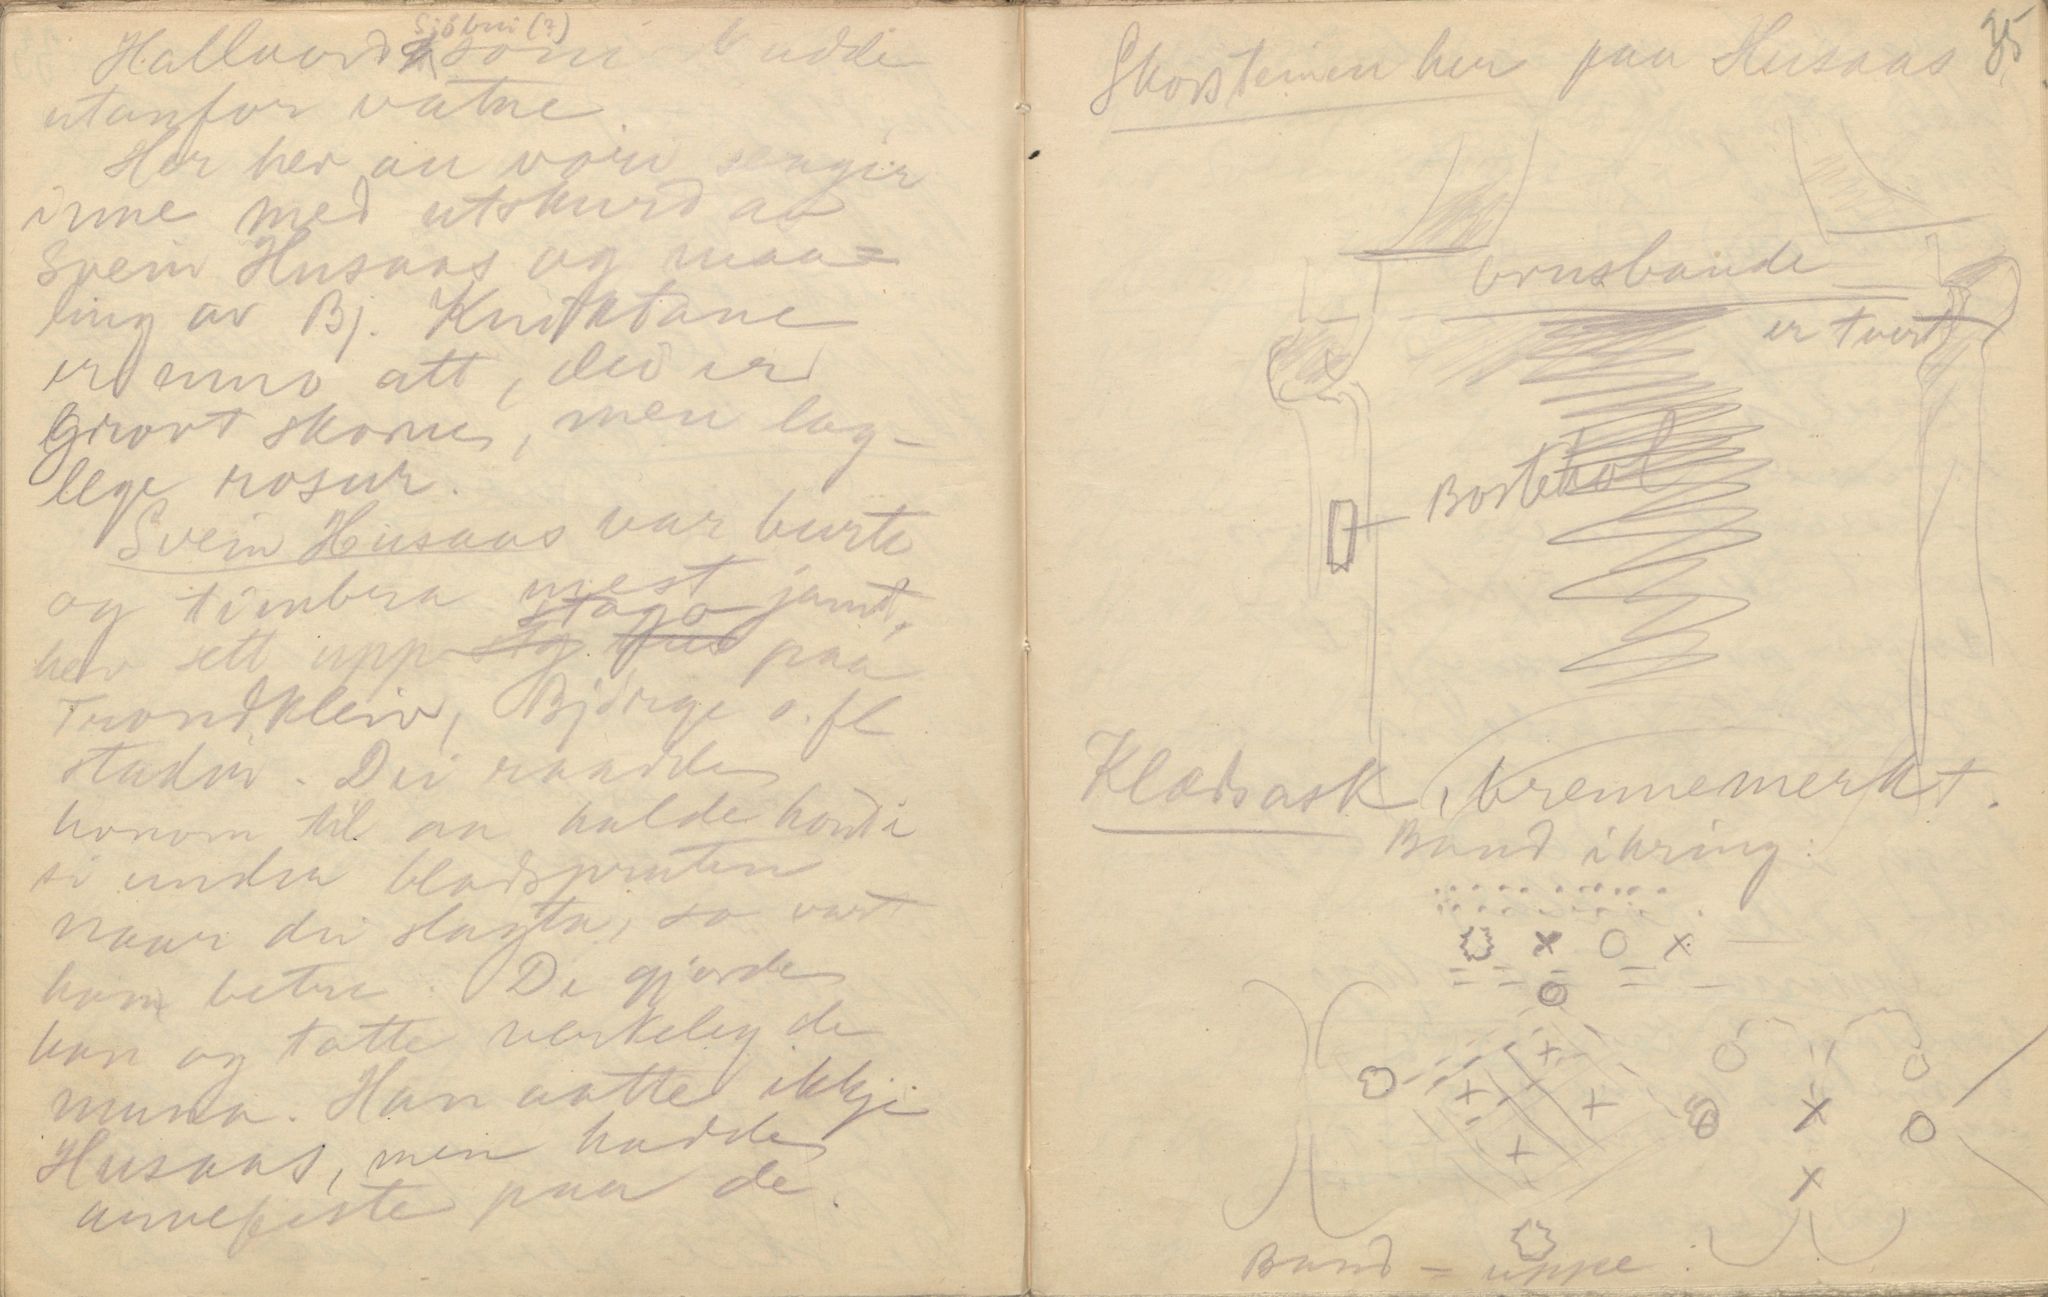 Sjöbui (?)
Hallvard som budde
utanfor vatne.
Her hev an vori sengir
inne med utskurd av
Svein Husaas og maa=
ling av Bj. Kniktane
er muro att, dei er
Grovt skorne, men lag-
lege rosur.
Svein Husaas var burte
og timbra mest jamt,
hev sett upp stogo paa
Trondkleiv, Bjørge o.fl
stadir. Dei raadde
honom til aa halde hond i
si undra blodspruten
naar dei slagta, so vart
han betre. De gjorde
han og totte verkeleg de
muna. Han aatte ikkje
Husaas, men hadde
paa de.
35
Skorsteinen her paa Husaas
ornsbande
er tvert
Bostehol
Klædsask, brennemerkt.
Band ikring:
Band - uppe :